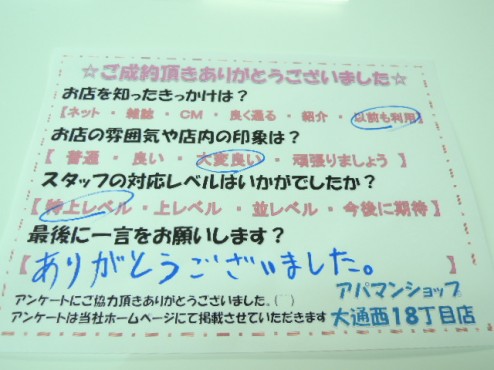 ☆ご成約頂きありがとうございました☆
お店を知ったきっかけは？
【ネット・雑誌・CM・良く通る・紹介・以前も利用】
お店の雰囲気や店内の印象は？
【普通・良い・大変良い・頑張りましょう】
スタッフの対応レベルはいかがでしたか？
【特上レベル・上レベル・並レベル・今後に期待】
最後に一言をお願いします？
【ありがとうございました。】
アンケートにご協力頂きありがとうございました。(⌒⌒)
アンケートは当社ホームページにて掲載させていただきます
アパマンショップ
大通西18丁目店